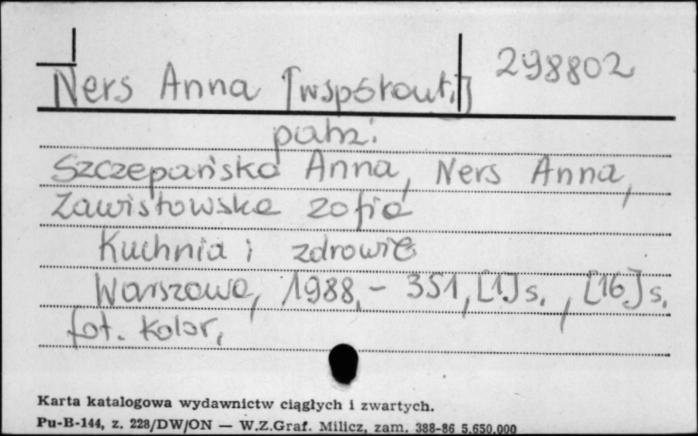 298802
Ners Anna [współaut.]
patrz:
Szczepańska Anna, Ners Anna,
Zawistowska Zofia
Kuchnia i zdrowie
Warszawa, 1988, - 351, [1] s., [16] s.
fot. kolor,
Karta katalogowa wydawnictw ciągłych i zwartych.
Pu-B-144, z. 228/DW/ON — W.Z.Graf. Milicz, zam. 388-86 5.650.000